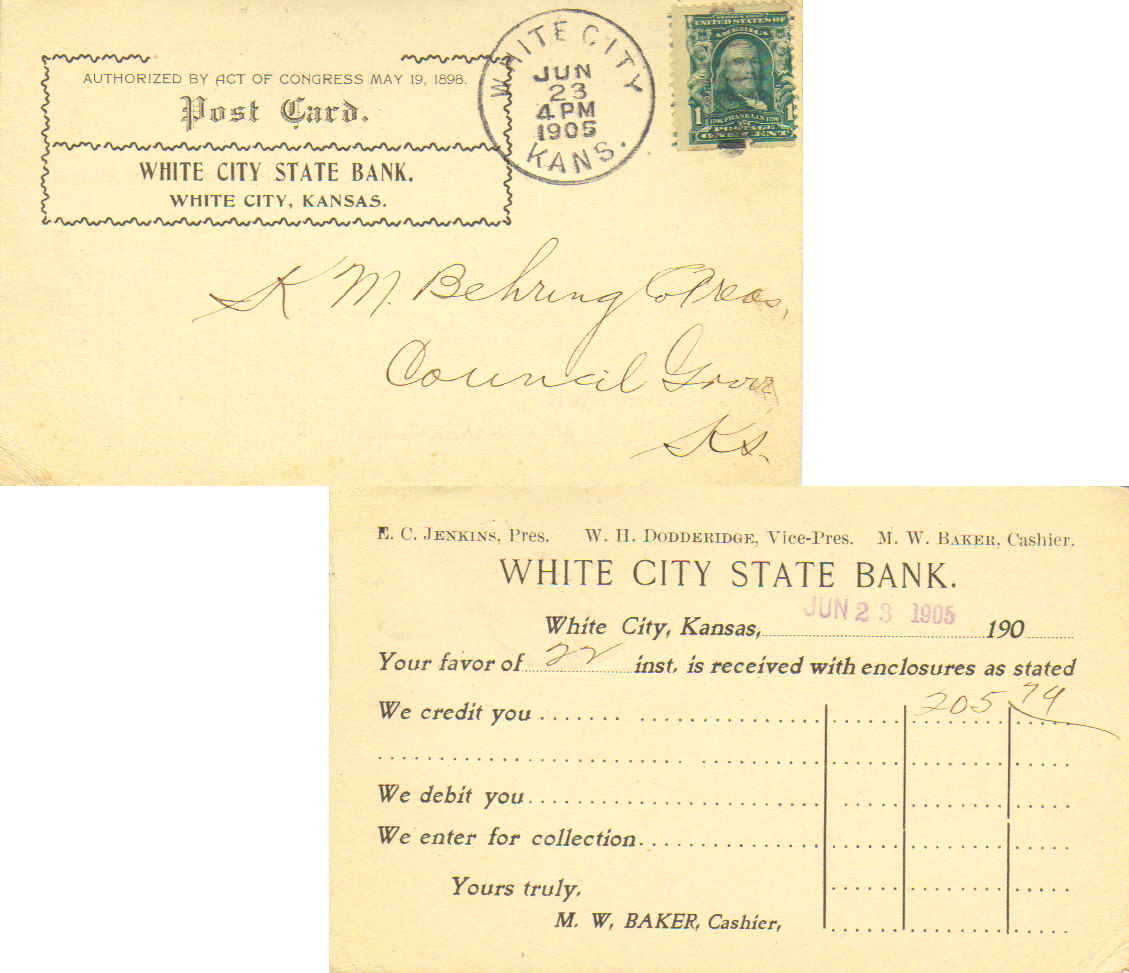 AUTHORIZED BY ACT OF CONGRESS MAY 19, 1898.
Post Card.
WHITE CITY STATE BANK.
WHITE CITY, KANSAS.
WHITE CITY
JUN
23
4 PM
1905
KANS.
UNITED STATES OF
AMERICA
1 1
POSTAGE
ONE CENT
K M. Behring Co Treas,
Council Grove
Ks.
E. C. JENKINS, Pres. W. H. DODDERIDGE, Vice-Pres. M. W. BAKER, Cashier.
WHITE CITY STATE BANK.
White City, Kansas, JUN 23 1905 190
Your favor of 22 inst. is received with enclosures as stated
We credit you 205 74
We debit you
We enter for collection
Yours truly,
M. W. BAKER, Cashier,